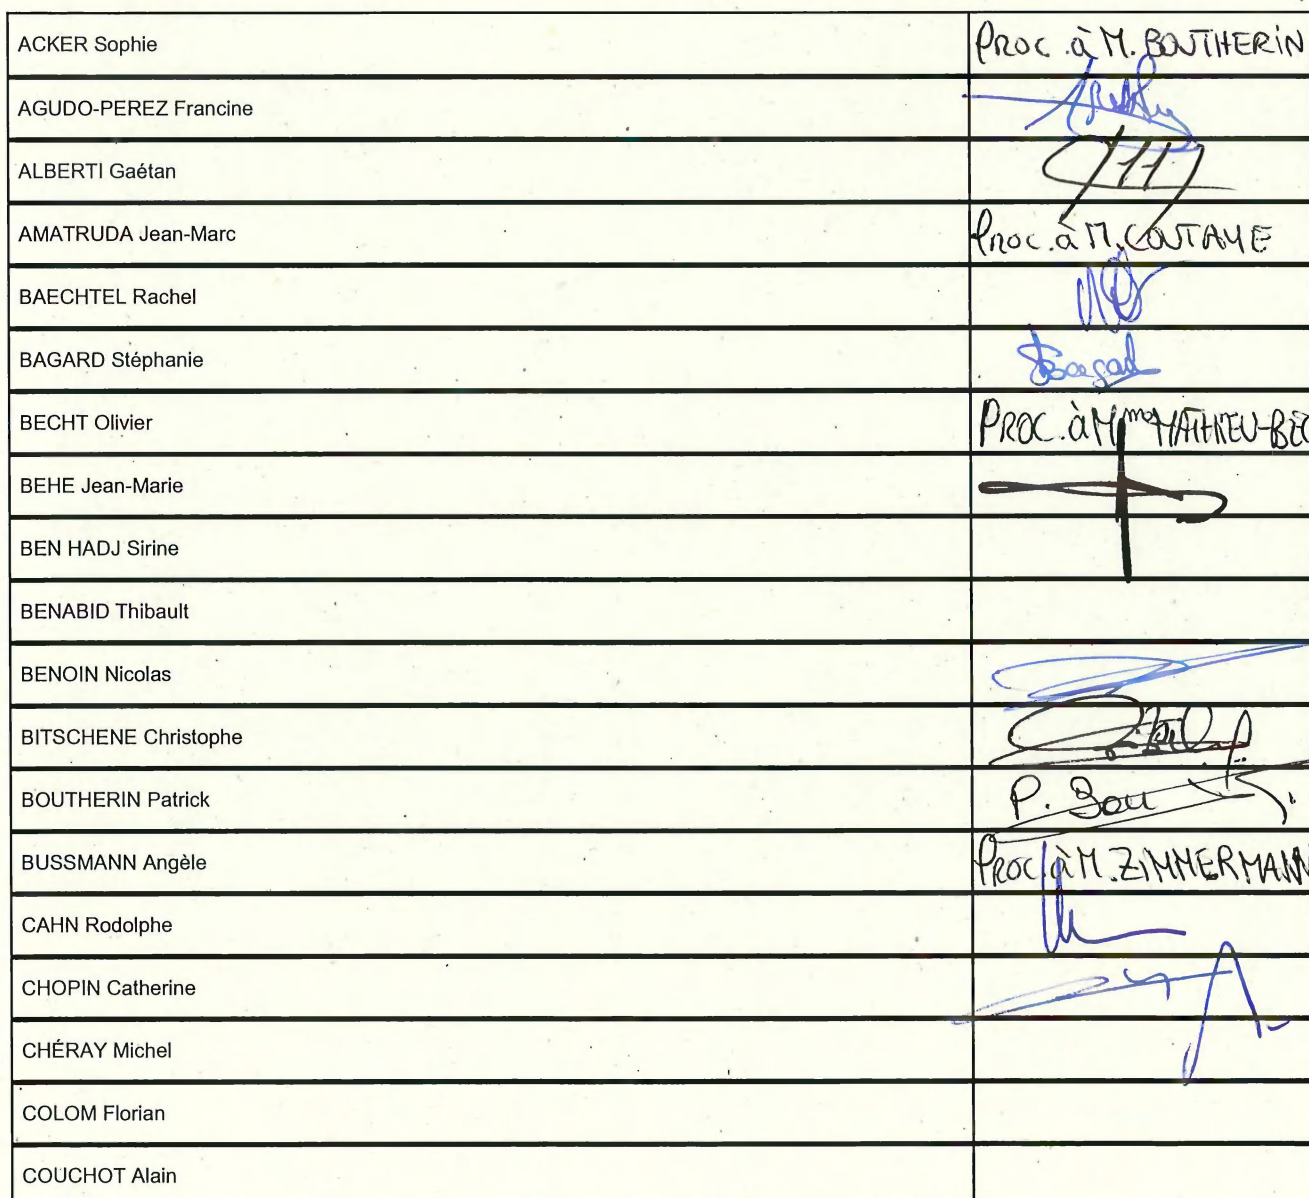 ACKER Sophie
PROC. à M. BOUTHERIN
AGUDO-PEREZ Francine
ALBERTI Gaétan
AMATRUDA Jean-Marc
PROC. à M. COUTAYE
BAECHTEL Rachel
BAGARD Stéphanie
BECHT Olivier
PROC. à Mme MATHIEU-BEC
BEHE Jean-Marie
BEN HADJ Sirine
BENABID Thibault
BENOIN Nicolas
BITSCHENE Christophe
BOUTHERIN Patrick
P. Bou
BUSSMANN Angèle
PROC. à M. ZIMMERMANN
CAHN Rodolphe
CHOPIN Catherine
CHÉRAY Michel
COLOM Florian
COUCHOT Alain